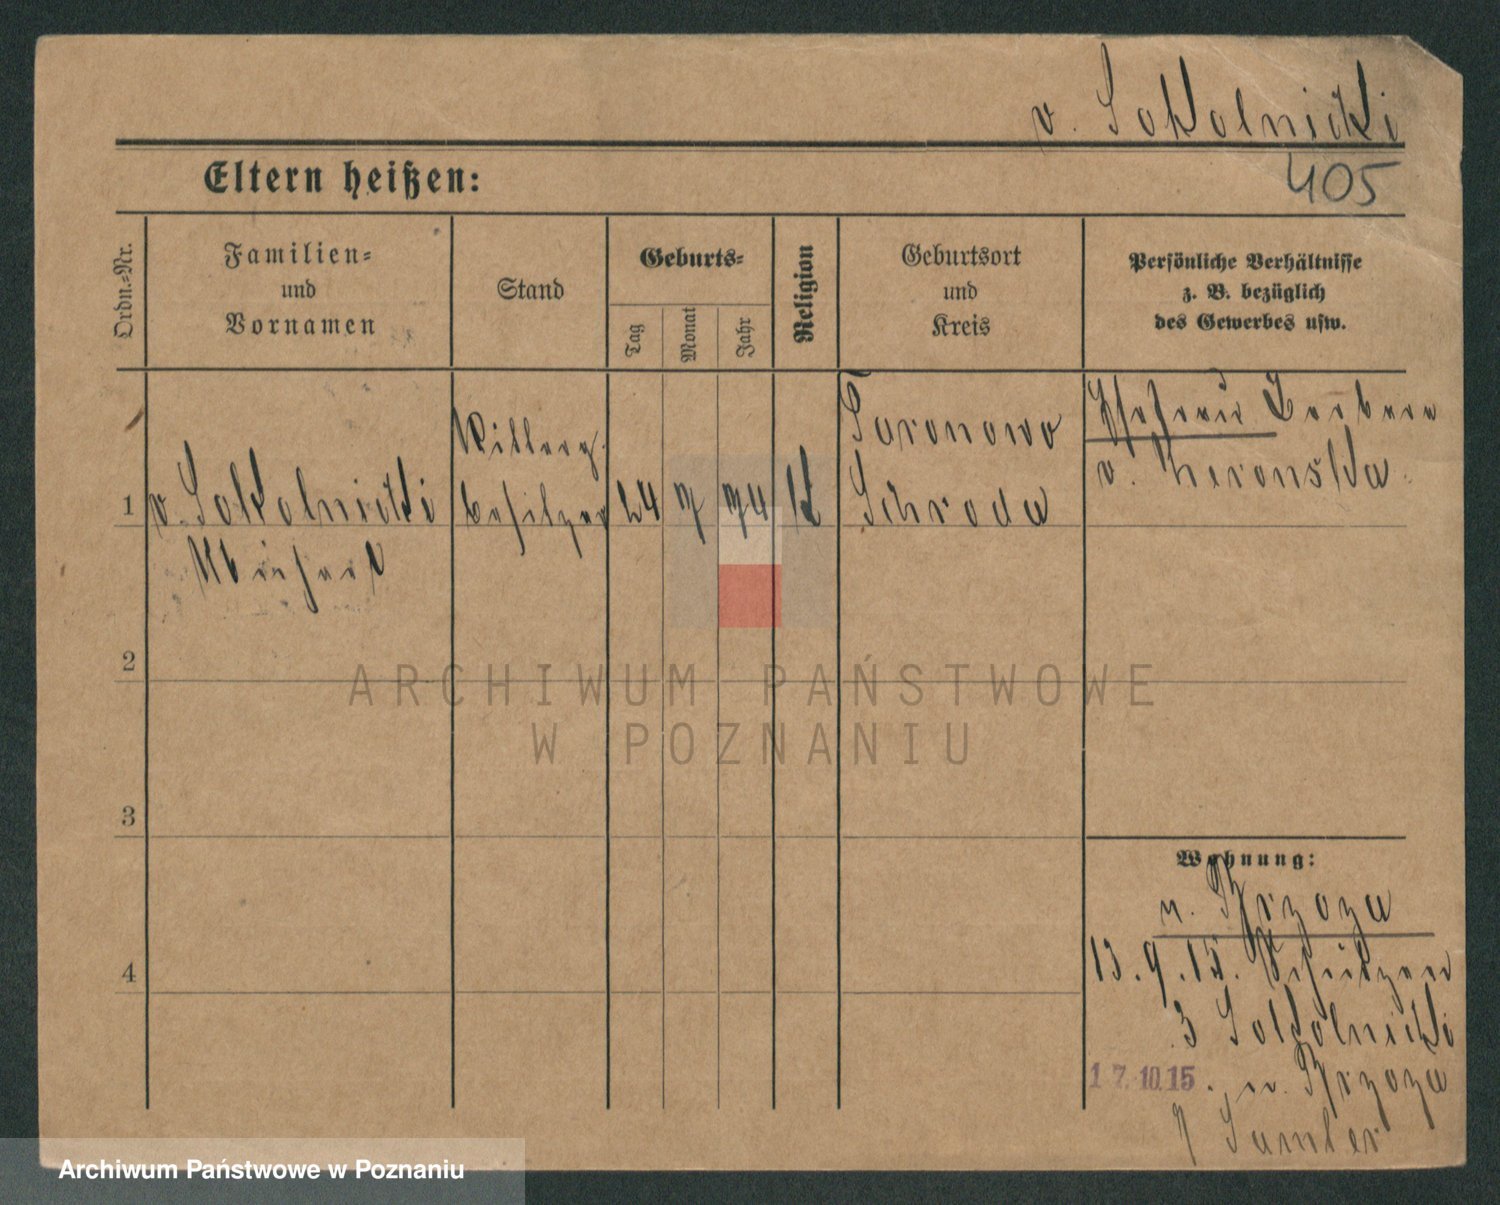 v. Sokolnicki
405
Eltern heißen:
Ordn.-Nr.
Familien-
und
Vornamen
Stand
Geburts-
Tag
Monat
Jahr
Religion
Geburtsort
und
Kreis
Persönliche Verhältnisse
z. B. bezüglich
des Gewerbes usw.
1
v. Sokolnicki
Ritterg.
besitzer
24
7
74
K
Schroda
Ehefrau Barbara
v.
2
3
4
Wohnung:
v. Brzoza
13.9.15. Schützen
3 Sokolnicki
17.10.15. v. Brzoza
Samter
ARCHIWUM PAŃSTWOWE
W POZNANIU
Archiwum Państwowe w Poznaniu